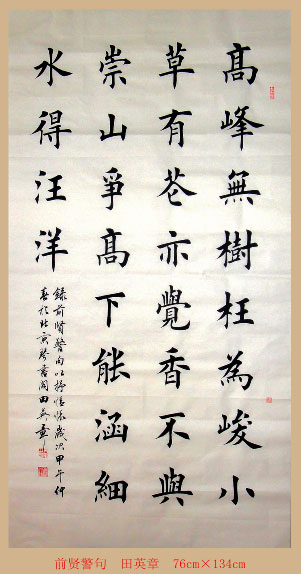 髙峰無樹枉為峻小
草有花亦覺香不與
崇山爭髙下能涵細
水得汪洋
錄前賢警句以抒情懷歲次甲午仲
春於北京琴書閣田英章
前贤警句 田英章 76cm×134cm